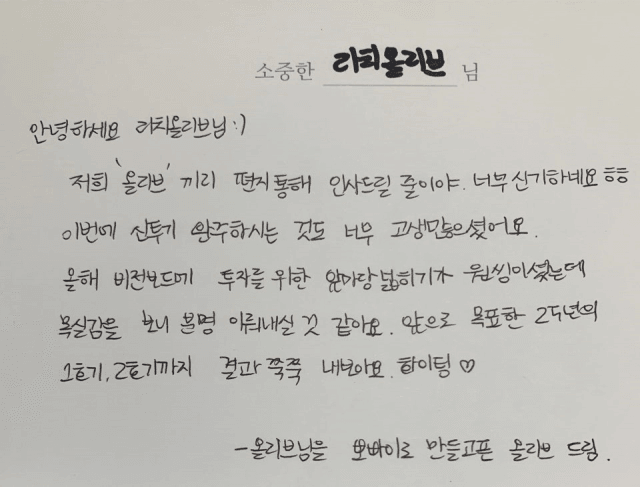 소중한 리치올리브 님
안녕하세요 리치올리브님:)
저희 '올리브' 끼리 편지통해 인사드릴 줄이야. 너무신기하네요ㅎㅎ
이번에 신투기 완주하시는 것도 너무 고생많으셨어요.
올해 비전보드에 투자를 위한 앞마당넓히기가 원씽이셨는데
목실감을 보니 분명 이뤄내실 것 같아요. 앞으로 목표한 25년의
1호기, 2호기까지 결과 쭉쭉 내보아요. 화이팅♡
-올리브님을 오빠이로 만들고픈 올리브 드림.